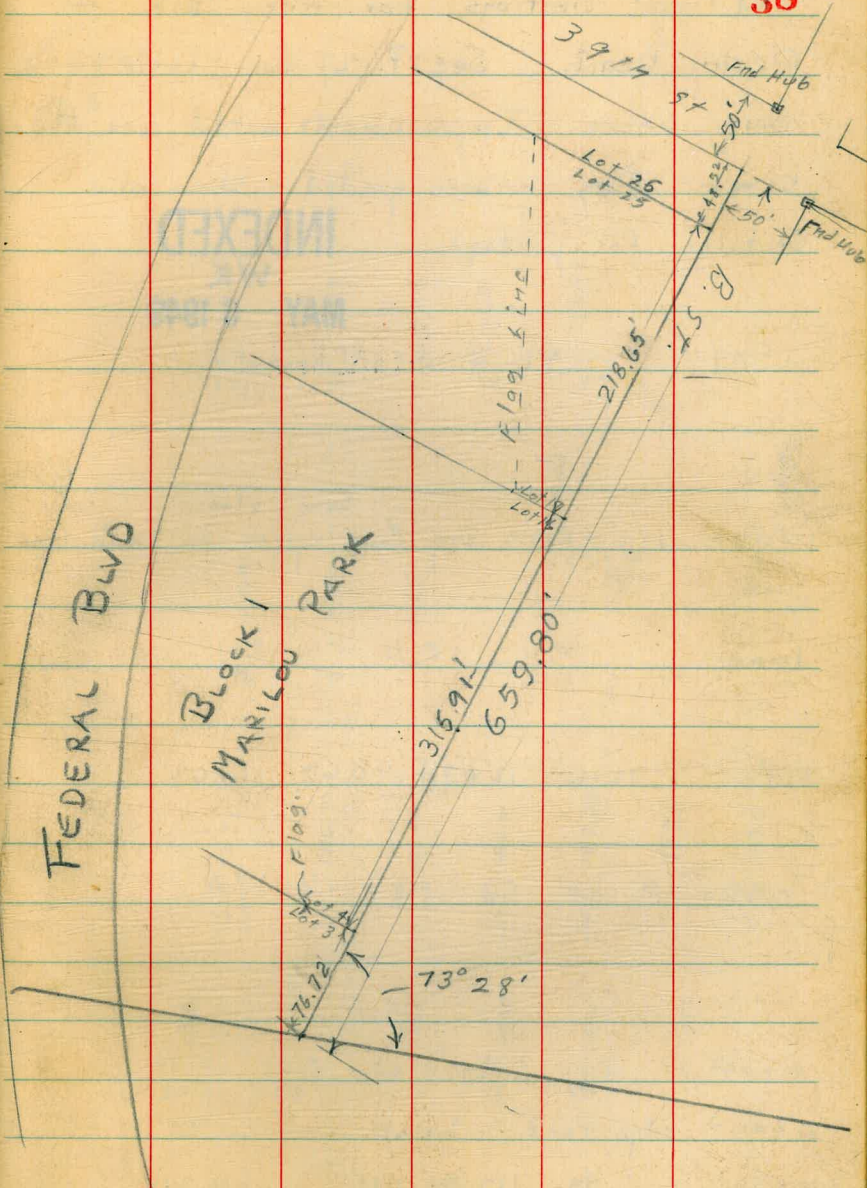 38
39th
St
Fnd Hub
50'
Lot 26
Lot 25
48.52'
50'
Fnd Hub
INDEXED
MAY
1949
B. St.
Flag Line
218.65'
Lot 18
FEDERAL BLVD
BLOCK 1
MARILOU PARK
315.91'
659.80'
Flag.
Lot 4
Lot 3
76.72'
73° 28'